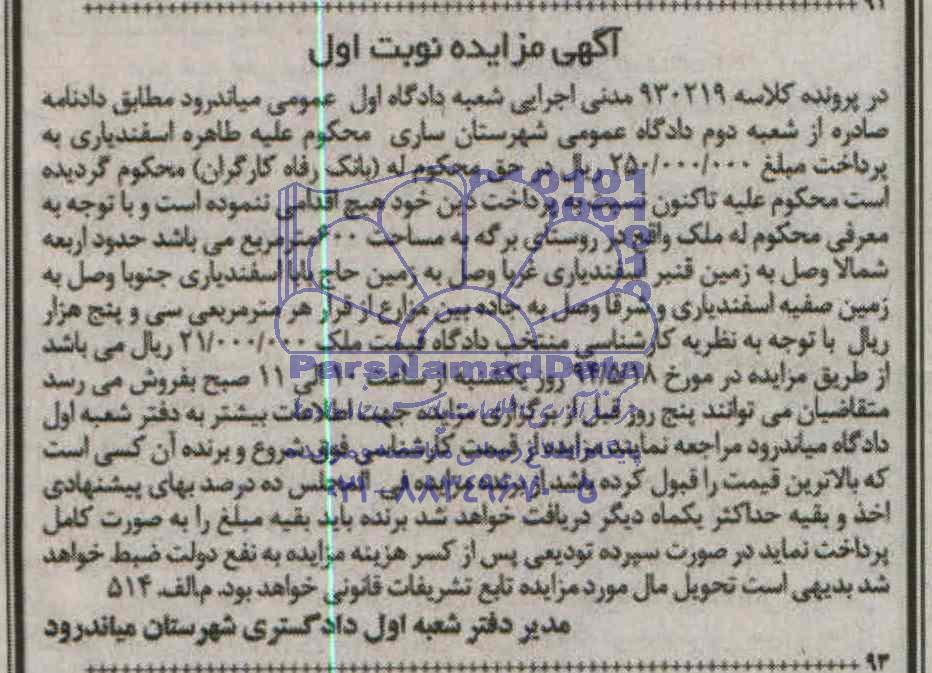 ۹۲
آگهی مزایده نوبت اول
در پرونده کلاسه ۹۳۰۲۱۹ مدنی اجرایی شعبه دادگاه اول عمومی میاندرود مطابق دادنامه
صادره از شعبه دوم دادگاه عمومی شهرستان ساری محکوم علیه طاهره اسفندیاری به
پرداخت مبلغ ۲۵۰/۰۰۰/۰۰۰ ریال در حق محکوم له (بانک رفاه کارگران) محکوم گردیده
است محکوم علیه تاکنون نسبت به پرداخت دین خود هیچ اقدامی ننموده است و با توجه به
معرفی محکوم له ملک واقع در روستای برگه به مساحت ۶۰۰ مترمربع می باشد حدود اربعه
شمالا وصل به زمین قنبر اسفندیاری غربا وصل به زمین حاج بابا اسفندیاری جنوبا وصل به
زمین صفیه اسفندیاری و شرقا وصل به جاده بین مزارع از قرار هر مترمربعی سی و پنج هزار
ریال با توجه به نظریه کارشناسی منتخب دادگاه قیمت ملک ۲۱/۰۰۰/۰۰۰ ریال می باشد
از طریق مزایده در مورخ ۹۴/۵/۱۸ روز یکشنبه از ساعت ۱۰ الی ۱۱ صبح بفروش می رسد
متقاضیان می توانند پنج روز قبل از برگزاری مزایده جهت اطلاعات بیشتر به دفتر شعبه اول
دادگاه میاندرود مراجعه نمایند مزایده از قیمت کارشناسی فوق شروع و برنده آن کسی است
که بالاترین قیمت را قبول کرده باشد از برنده مزایده فی المجلس ده درصد بهای پیشنهادی
اخذ و بقیه حداکثر یکماه دیگر دریافت خواهد شد برنده باید بقیه مبلغ را به صورت کامل
پرداخت نماید در صورت سپرده تودیعی پس از کسر هزینه مزایده به نفع دولت ضبط خواهد
شد بدیهی است تحویل مال مورد مزایده تابع تشریفات قانونی خواهد بود. م.الف. ۵۱۴
مدیر دفتر شعبه اول دادگستری شهرستان میاندرود
۹۳
ParsNamadData
۰۲۱-۸۸۳۴۹۶۷۰-۵